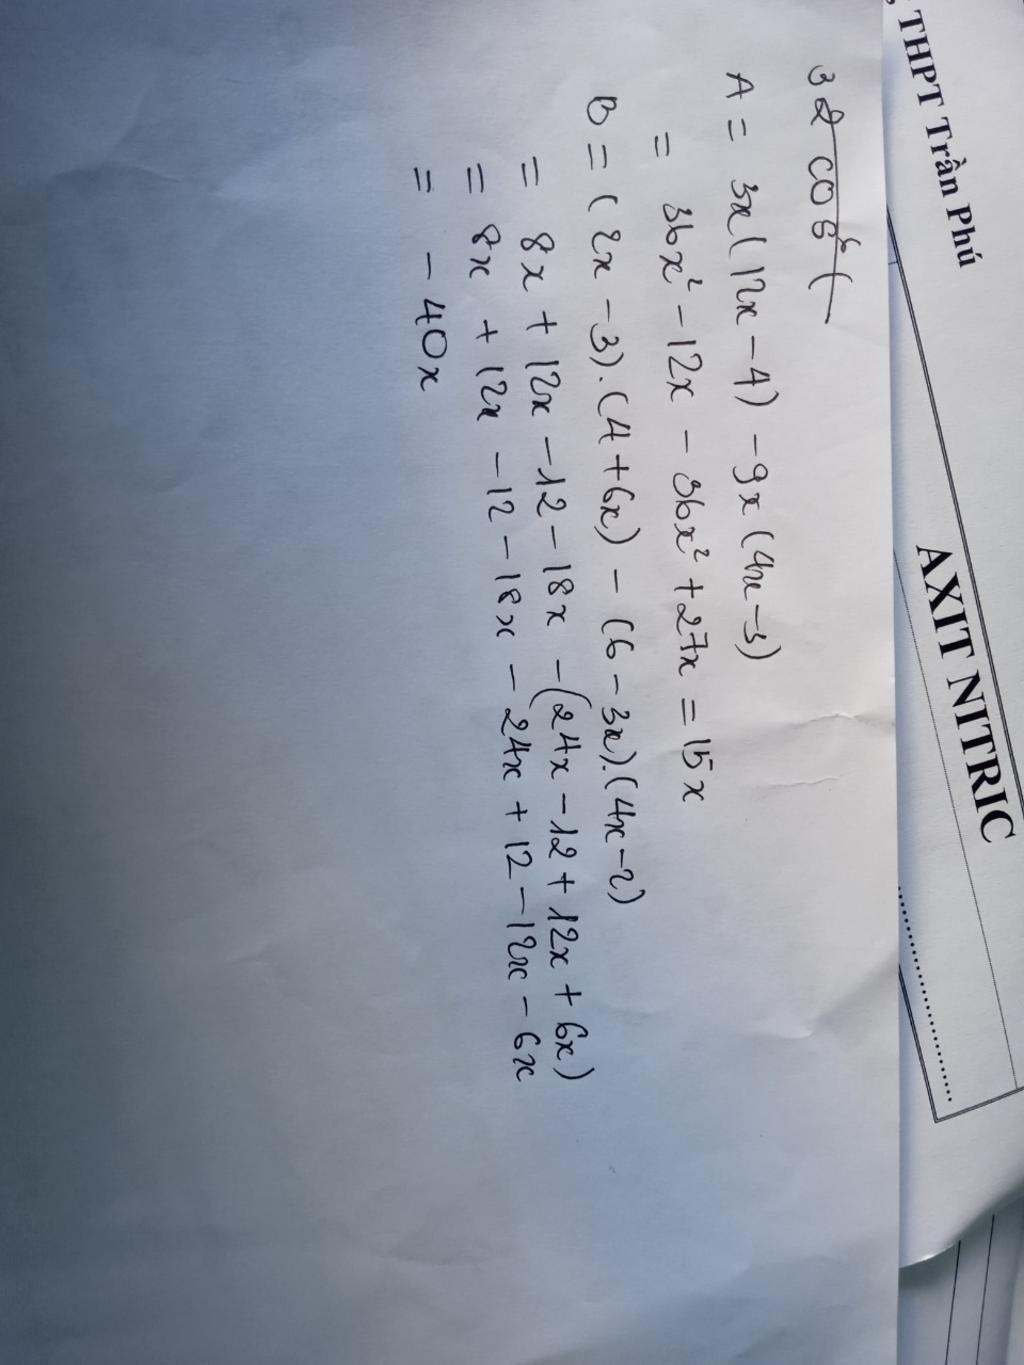 THPT Trần Phú
AXIT NITRIC
32 cos⁶(
A = 3x(12x - 4) - 9x(4x - 3)
= 36x² - 12x - 36x² + 27x = 15x
B = (2x - 3).(4 + 6x) - (6 - 3x).(4x - 2)
= 8x + 12x - 12 - 18x - (24x - 12 + 12x + 6x)
= 8x + 12x - 12 - 18x - 24x + 12 - 12x - 6x
= - 40x